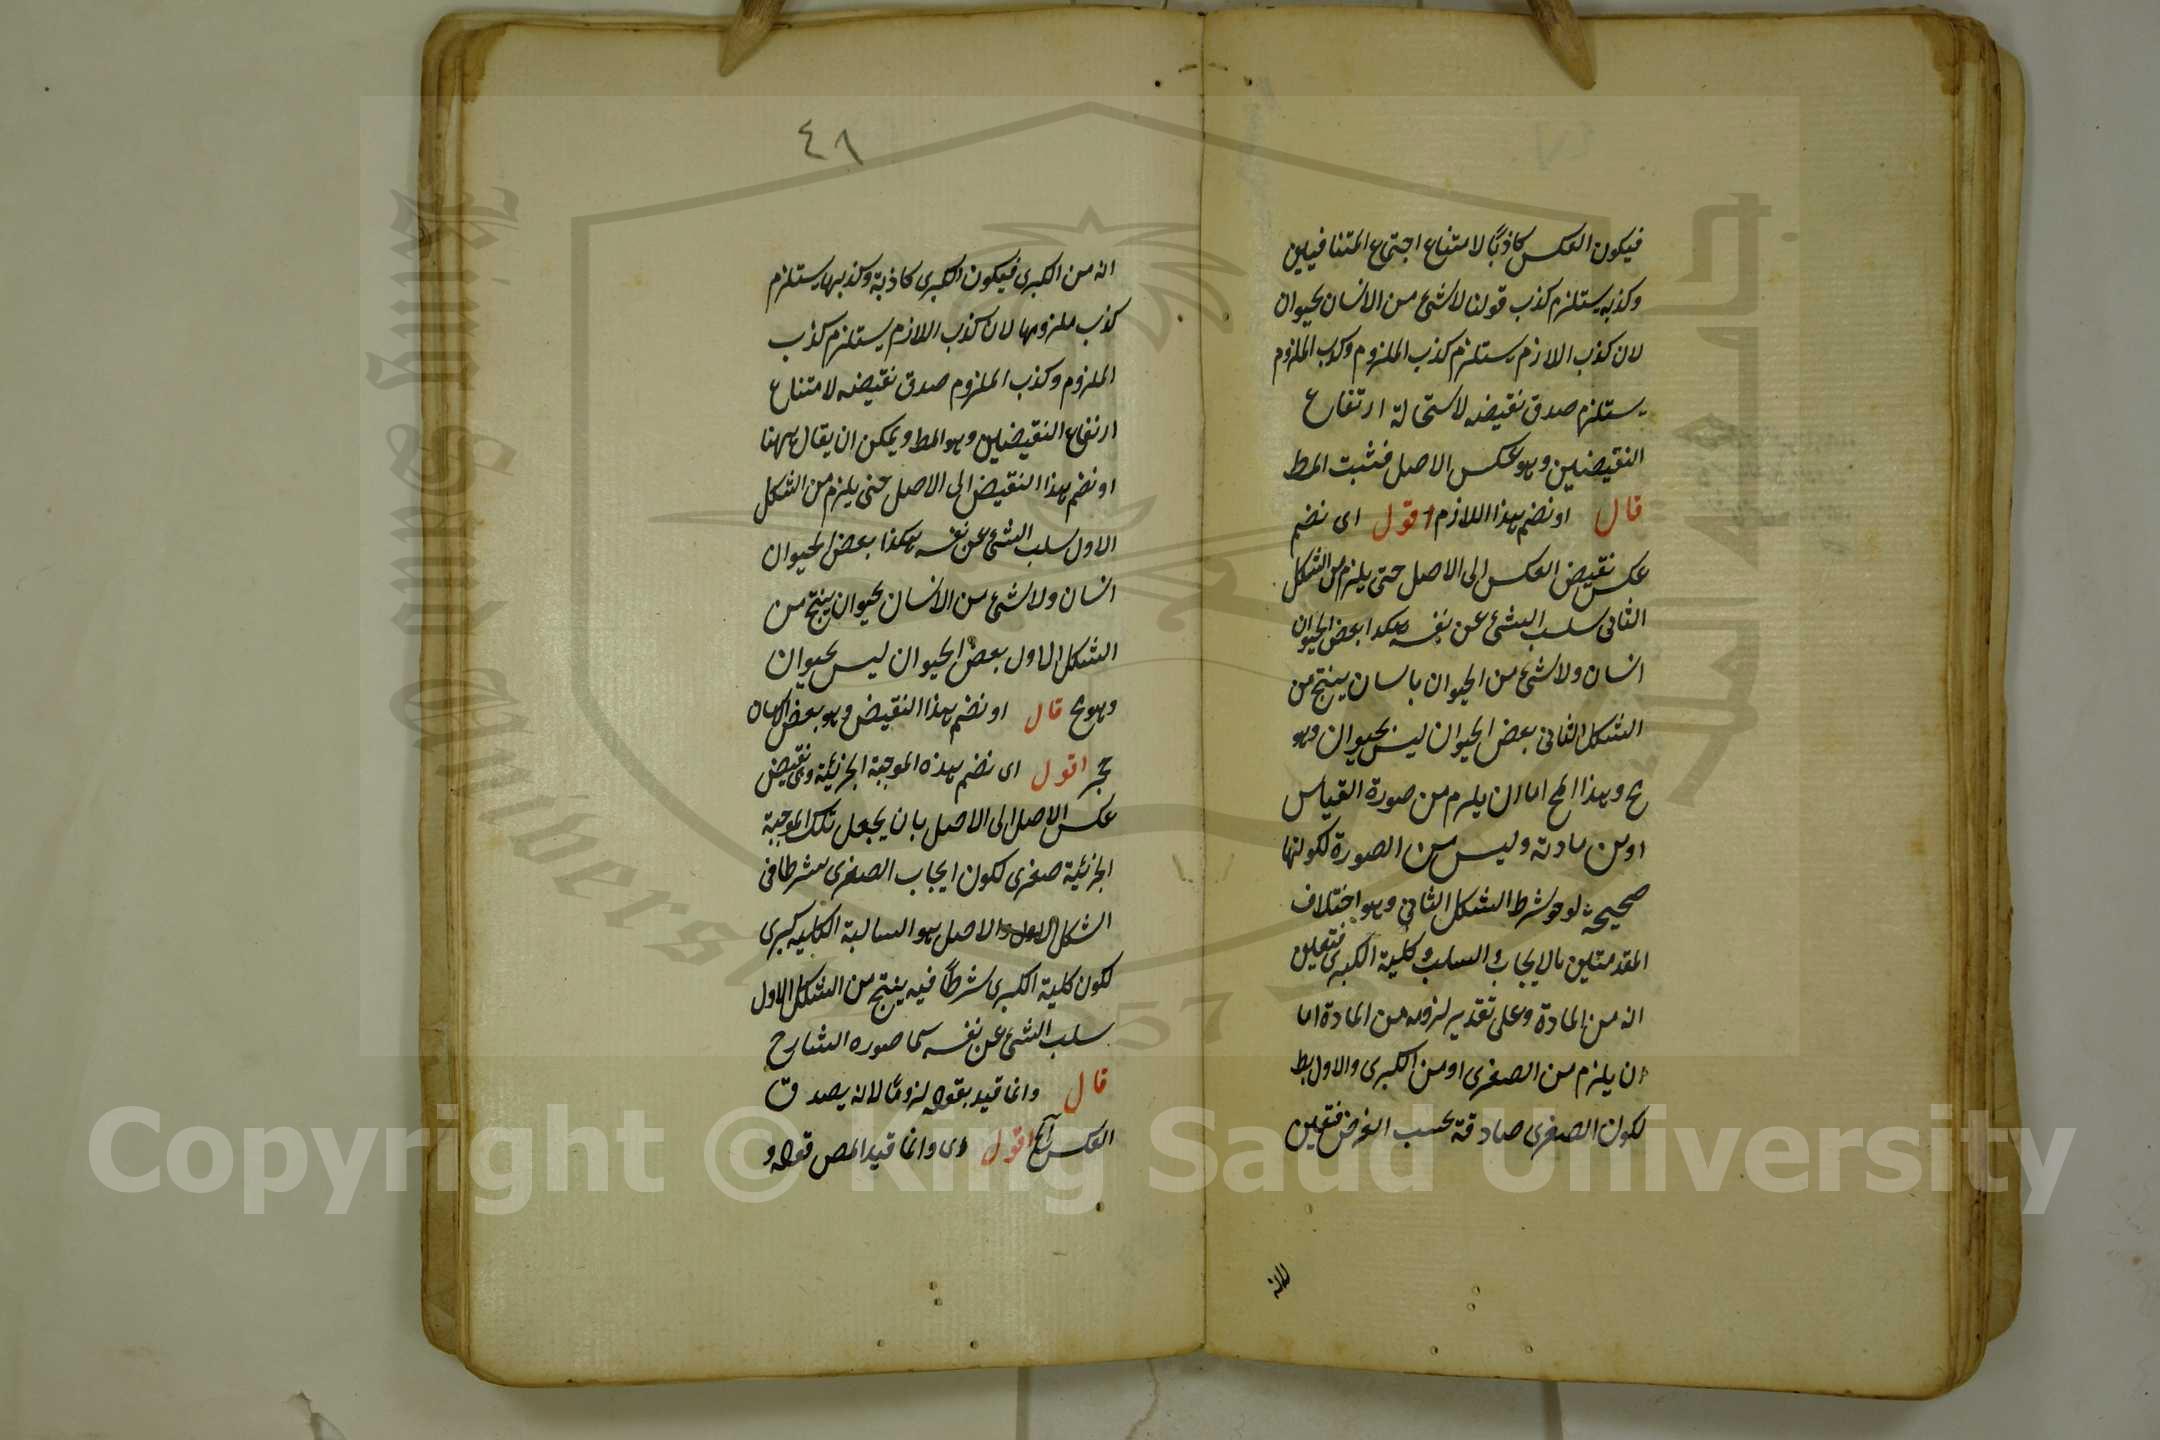 فيكون العكس كاذبًا لامتناع اجتماع المتنافيين
وكذبه يستلزم كذب قولنا لا شئ من الانسان بحيوان
لان كذب اللازم يستلزم كذب الملزوم وكذب الملزوم
يستلزم صدق نقيضه لاستحالة ارتفاع
النقيضين وهو عكس الاصل فثبت المط
قال او نضم هذا اللازم اقول اى نضم
عكس نقيض العكس الى الاصل حتى يلزم من الشكل
الثانى سلب الشئ عن نفسه هكذا بعض الحيوان
انسان ولا شئ من الحيوان بانسان ينتج من
الشكل الثانى بعض الحيوان ليس بحيوان وهو
مح وهذا المح اما ان يلزم من صورة القياس
او من مادته وليس من الصورة لكونها
صحيحة لوجو شرط الشكل الثانى وهو اختلاف
المقدمتين بالايجاب والسلب وكلية الكبرى فتعين
انه من المادة وعلى تقدير لزومه من المادة اما
ان يلزم من الصغرى او من الكبرى والاول بط
لكون الصغرى صادقة بحسب الفرض فتعين
انه
٤٦
انه من الكبرى فيكون الكبرى كاذبة وكذبها يستلزم
كذب ملزومها لان كذب اللازم يستلزم كذب
الملزوم وكذب الملزوم صدق نقيضه لامتناع
ارتفاع النقيضين وهو المط ويمكن ان يقال ههنا
او نضم هذا النقيض الى الاصل حتى يلزم من الشكل
الاول سلب الشئ عن نفسه هكذا بعض الحيوان
انسان ولا شئ من الانسان بحيوان ينتج من
الشكل الاول بعض الحيوان ليس بحيوان
وهو مح قال او نضم هذا النقيض وهو بعض الانسان
حجر اقول اى نضم هذه الموجبة الجزئية وهى نقيض
عكس الاصل الى الاصل بان يجعل تلك الموجبة
الجزئية صغرى لكون ايجاب الصغرى شرطا فى
الشكل الاول والاصل هو السالبة الكلية كبرى
لكون كلية الكبرى شرطًا فيه ينتج من الشكل الاول
سلب الشئ عن نفسه كما صوره الشارح
قال وانما قيد بقوله لزومًا لانه يصدق
العكس اقول اى وانما قيد المص قوله و
King Saud University
1957
Copyright © King Saud University